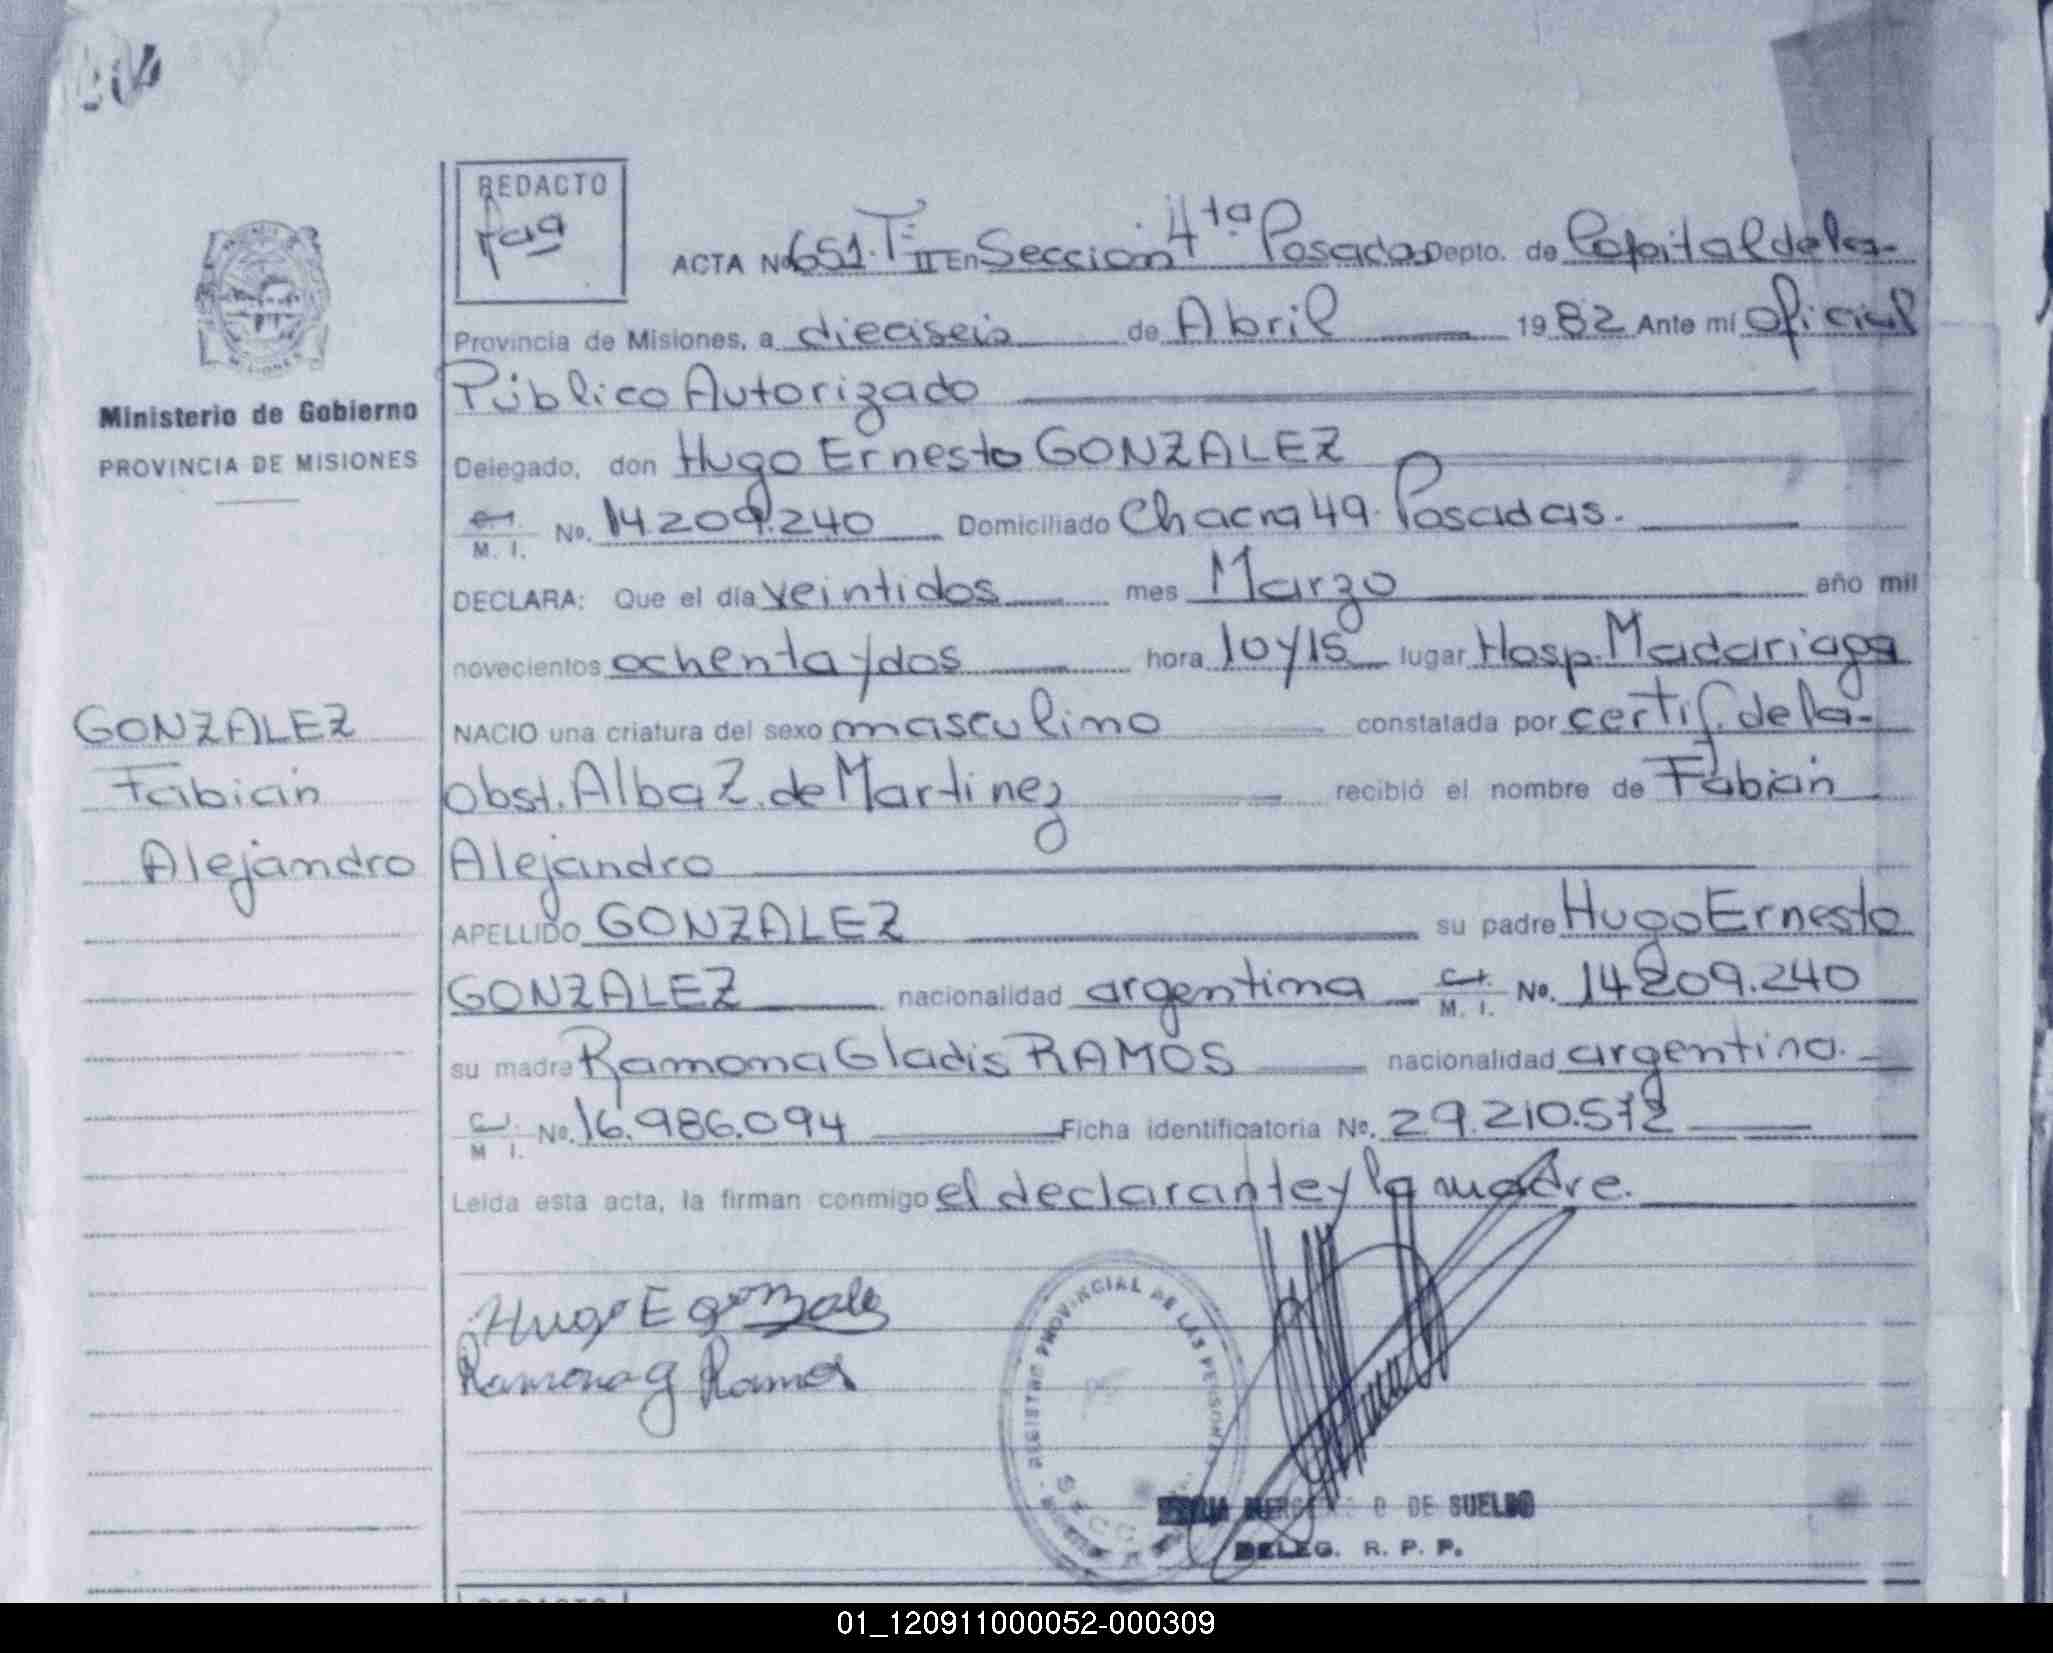 REDACTO
ACTA Nº 651. T= II En Seccion 4ta. Posadas Depto. de Capital de la-
Provincia de Misiones, a dieciseis de Abril 1982 Ante mí Oficial
Público Autorizado
Ministerio de Gobierno
PROVINCIA DE MISIONES
Delegado, don Hugo Ernesto GONZALEZ
M. I. Nº. 14.209.240 Domiciliado Chacra 49. Posadas.
DECLARA: Que el día veintidos mes Marzo año mil
novecientos ochenta y dos hora 10 y 15 lugar Hosp. Madariaga
GONZALEZ
Fabián
Alejandro
NACIO una criatura del sexo masculino constatada por certif. de la-
Obst. Alba Z. de Martinez recibió el nombre de Fabián
Alejandro
APELLIDO GONZALEZ su padre Hugo Ernesto
GONZALEZ nacionalidad argentina M. I. Nº. 14209.240
su madre Ramona Gladis RAMOS nacionalidad argentina.
M I. Nº. 16.986.094 Ficha identificatoria Nº. 29.210.572
Leída esta acta, la firman conmigo el declarante y la madre.
Hugo E Gonzalez
Ramona G Ramos
REGISTRO PROVINCIAL DE LAS PERSONAS
DE SUELDO
DELEG. R. P. P.
01_120911000052-000309